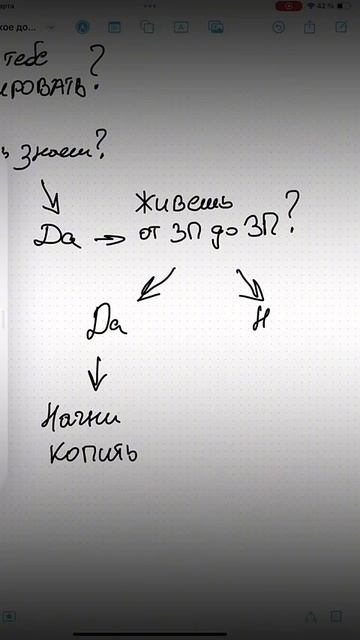 42 %
тебе ?
ировать?
знаем?
Да → Живешь
от ЗП до ЗП?
Да
Н
Начни
копить